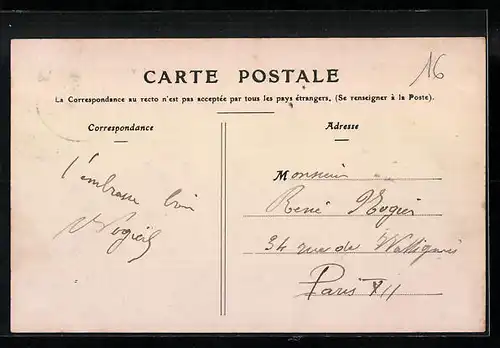 16
CARTE POSTALE
La Correspondance au recto n'est pas acceptée par tous les pays étrangers, (Se renseigner à la Poste).
Correspondance
Adresse
t'embrasse bien
Monsieur
René Nogier
34 rue de Wattignies
Paris XII